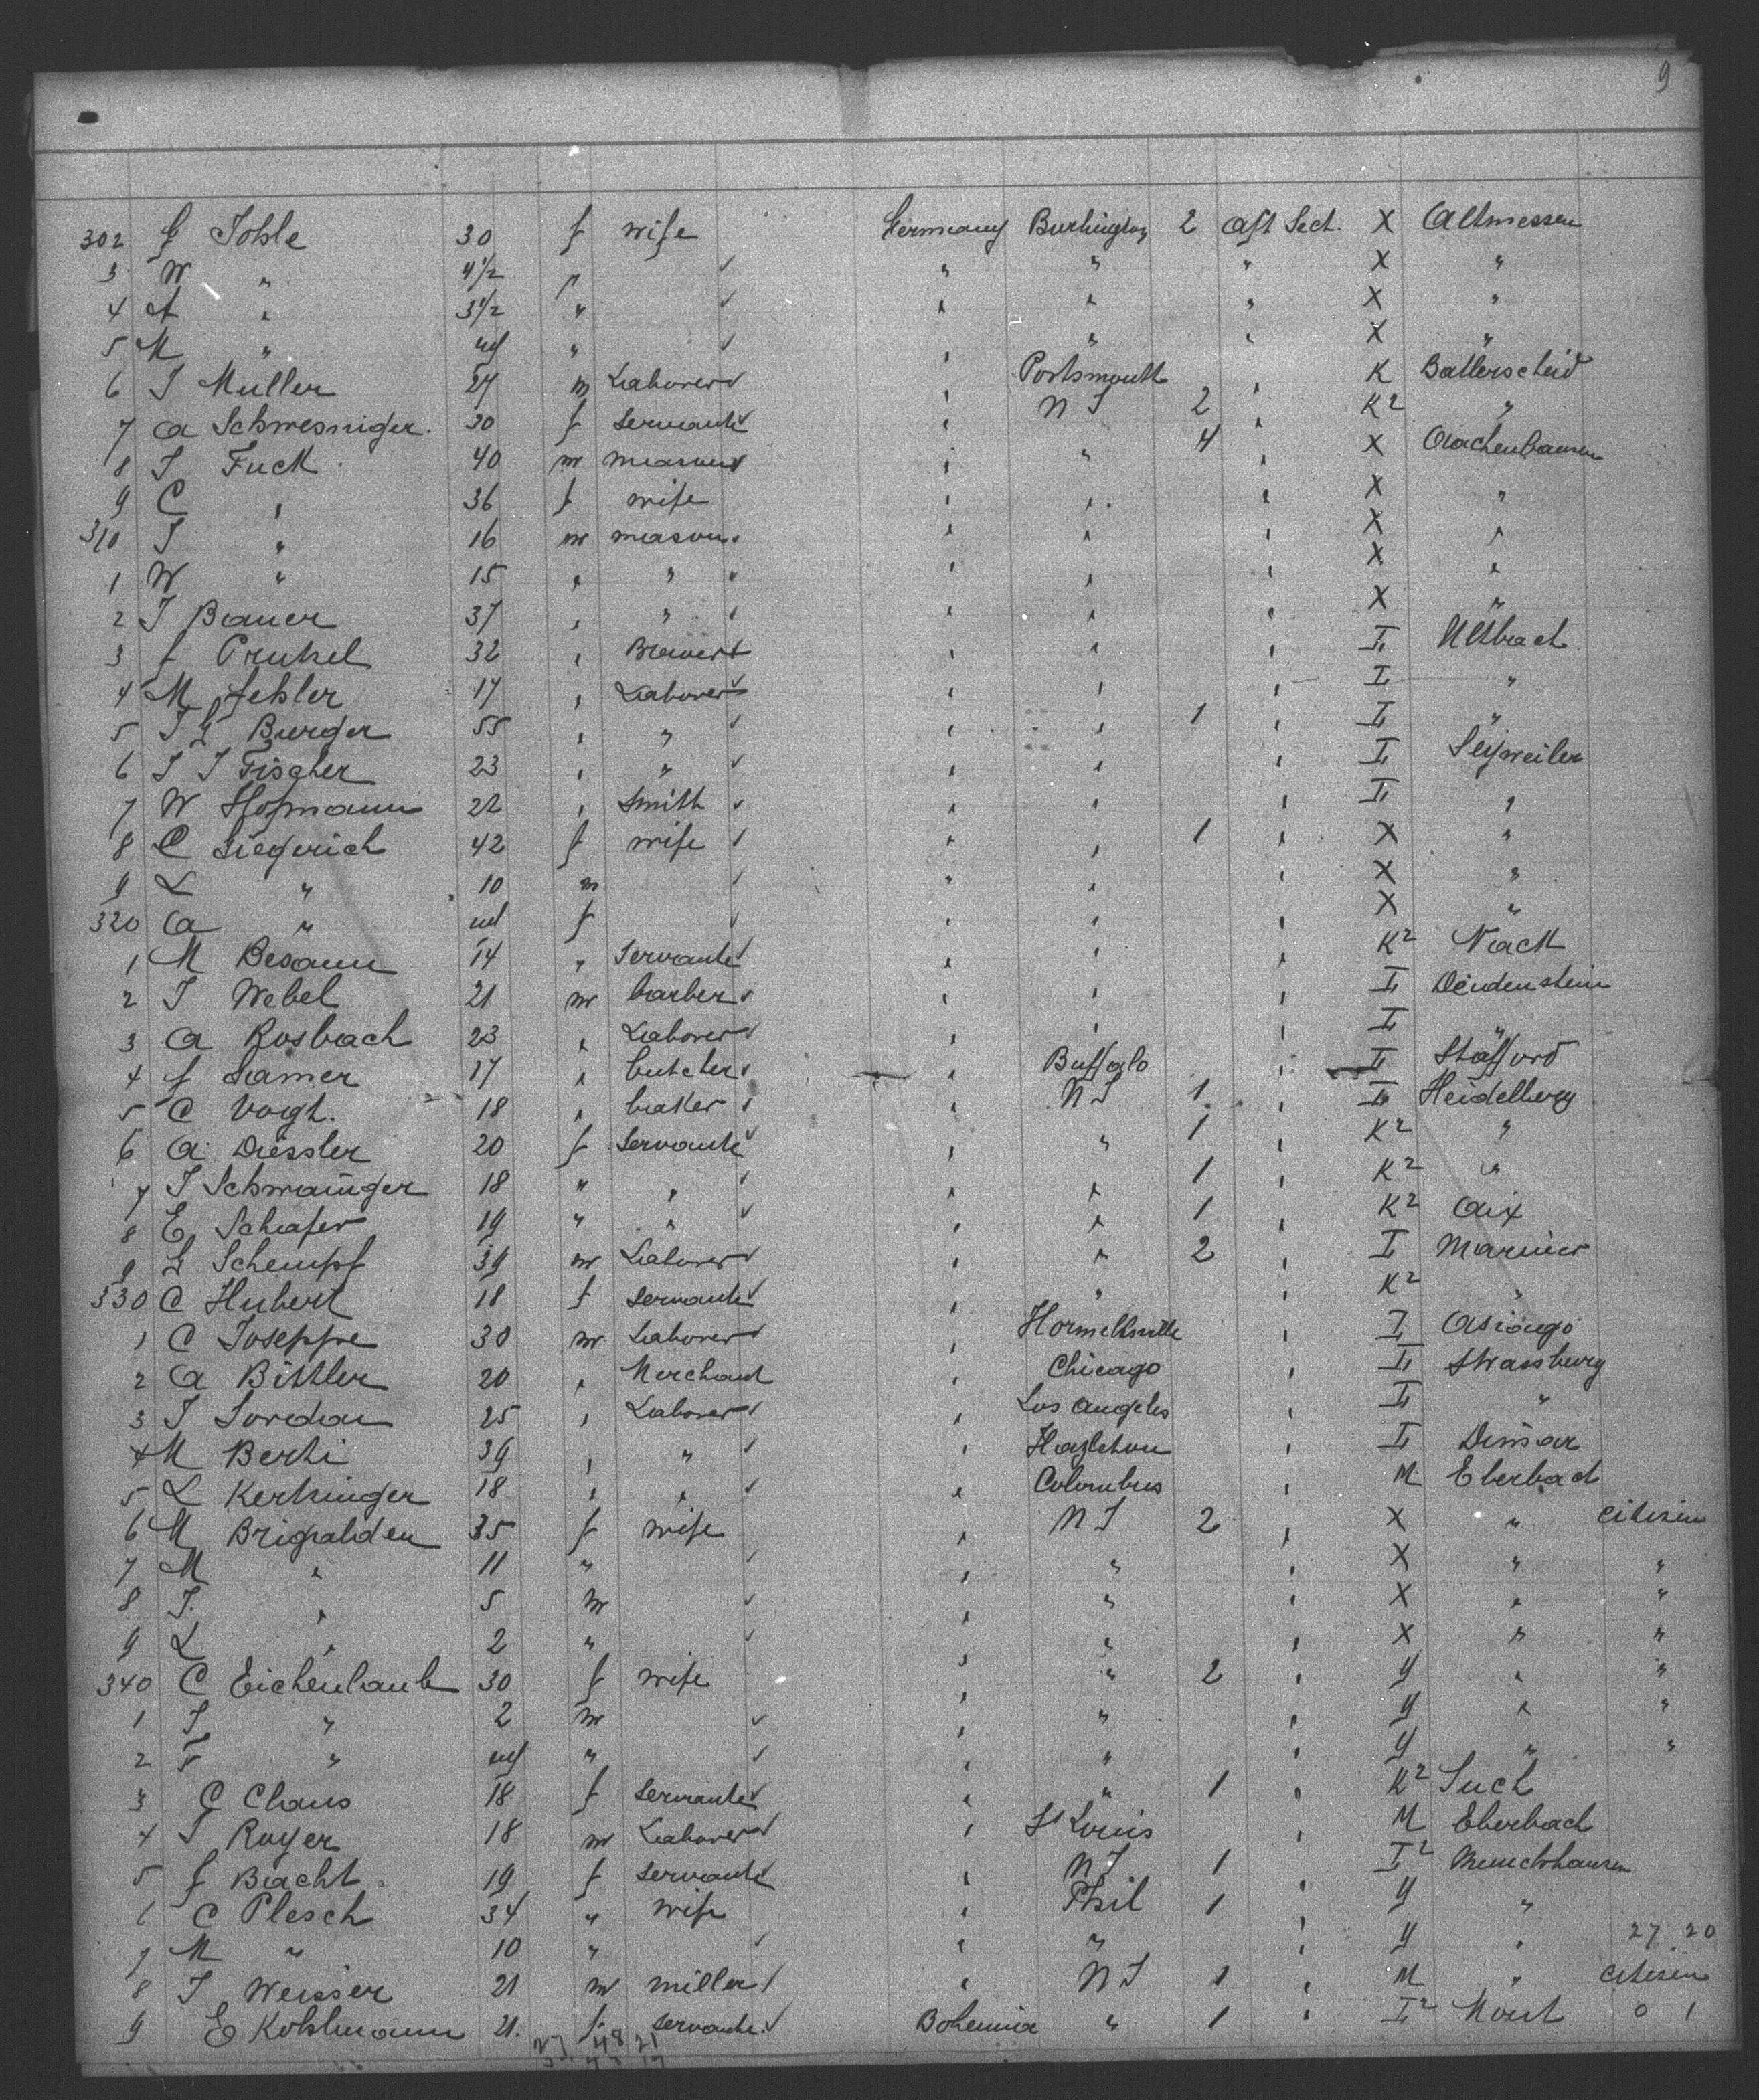 9
302 G Tohle 30 f wife Germany Burlington 2 aft Sect. X Altmessen
3 W " 4 1/2 " " " " X "
4 A " 3 1/2 " " " " X "
5 M " inf " " " " X "
6 J Muller 24 m Laborer " Portsmouth " K Batterscheid
7 A Schwesniger 30 f Servant " N J 2 " K2 "
8 J Fuck 40 m mason " " 4 " X
9 C " 36 f wife " " " X "
310 J " 16 m mason " " " X "
1 W " 15 " " " " " X "
2 J Bauer 37 " " " " " X "
3 f 32 " Brewer " " " I Altbach
4 M fehler 17 " Laborer " " " I "
5 J G Burger 55 " " " " 1 " I "
6 J J Fischer 23 " " " " " I Seyweiler
7 W Hofmann 22 " Smith " " " I "
8 C Siegerich 42 f wife " " 1 " X "
9 L " 10 m " " " X "
320 A " inf f " " " X "
1 M Besann 14 " Servant " " " K2 Nack
2 J Webel 21 m barber " " " I Deidenstein
3 A Rosbach 23 " Laborer " " " I "
4 f Samer 17 " butcher " Buffalo " I Stafford
5 C Voigt. 18 " baker " N J 1 " I Heidelberg
6 A Diessler 20 f Servant " " 1 " K2 "
7 J Schwainger 18 " " " " 1 " K2 "
8 E Schafer 19 " " " " 1 " K2 Aix
9 G Schempf 39 m Laborer " " 2 " I
330 C Hubert 18 f Servant " " " K2 "
1 C Joseppe 30 m Laborer " " I Asiago
2 A Bittler 20 " Merchant " Chicago " I Strassburg
3 J Jordan 25 " Laborer " Los Angeles " I "
4 M Berti 39 " " " Hazleton " I
5 L Kerkinger 18 " " " Colombus " M Eberbach
6 M Brigalden 35 f wife " N J 2 " X " Citisen
7 M " 11 " " " " X " "
8 J " 5 m " " " X " "
9 L " 2 " " " " X " "
340 C Eichenlaub 30 f wife " " 2 " Y " "
1 J " 2 m " " " Y " "
2 F " inf " " " " Y " "
3 C Claus 18 f Servant " " 1 " K2 Such
4 J Royer 18 m Laborer " St Louis " M Eberbach
5 f Bacht 19 f Servant " N J 1 " I2
6 C Plesch 34 " wife " Phil 1 " Y "
7 M " 10 " " " " Y " 27 20
8 J Weisser 21 m miller " N J 1 " M " Citisen
9 E Kohlmann 21. f Servant Bohemia " 1 " I2 Most 0 1
27 48 21